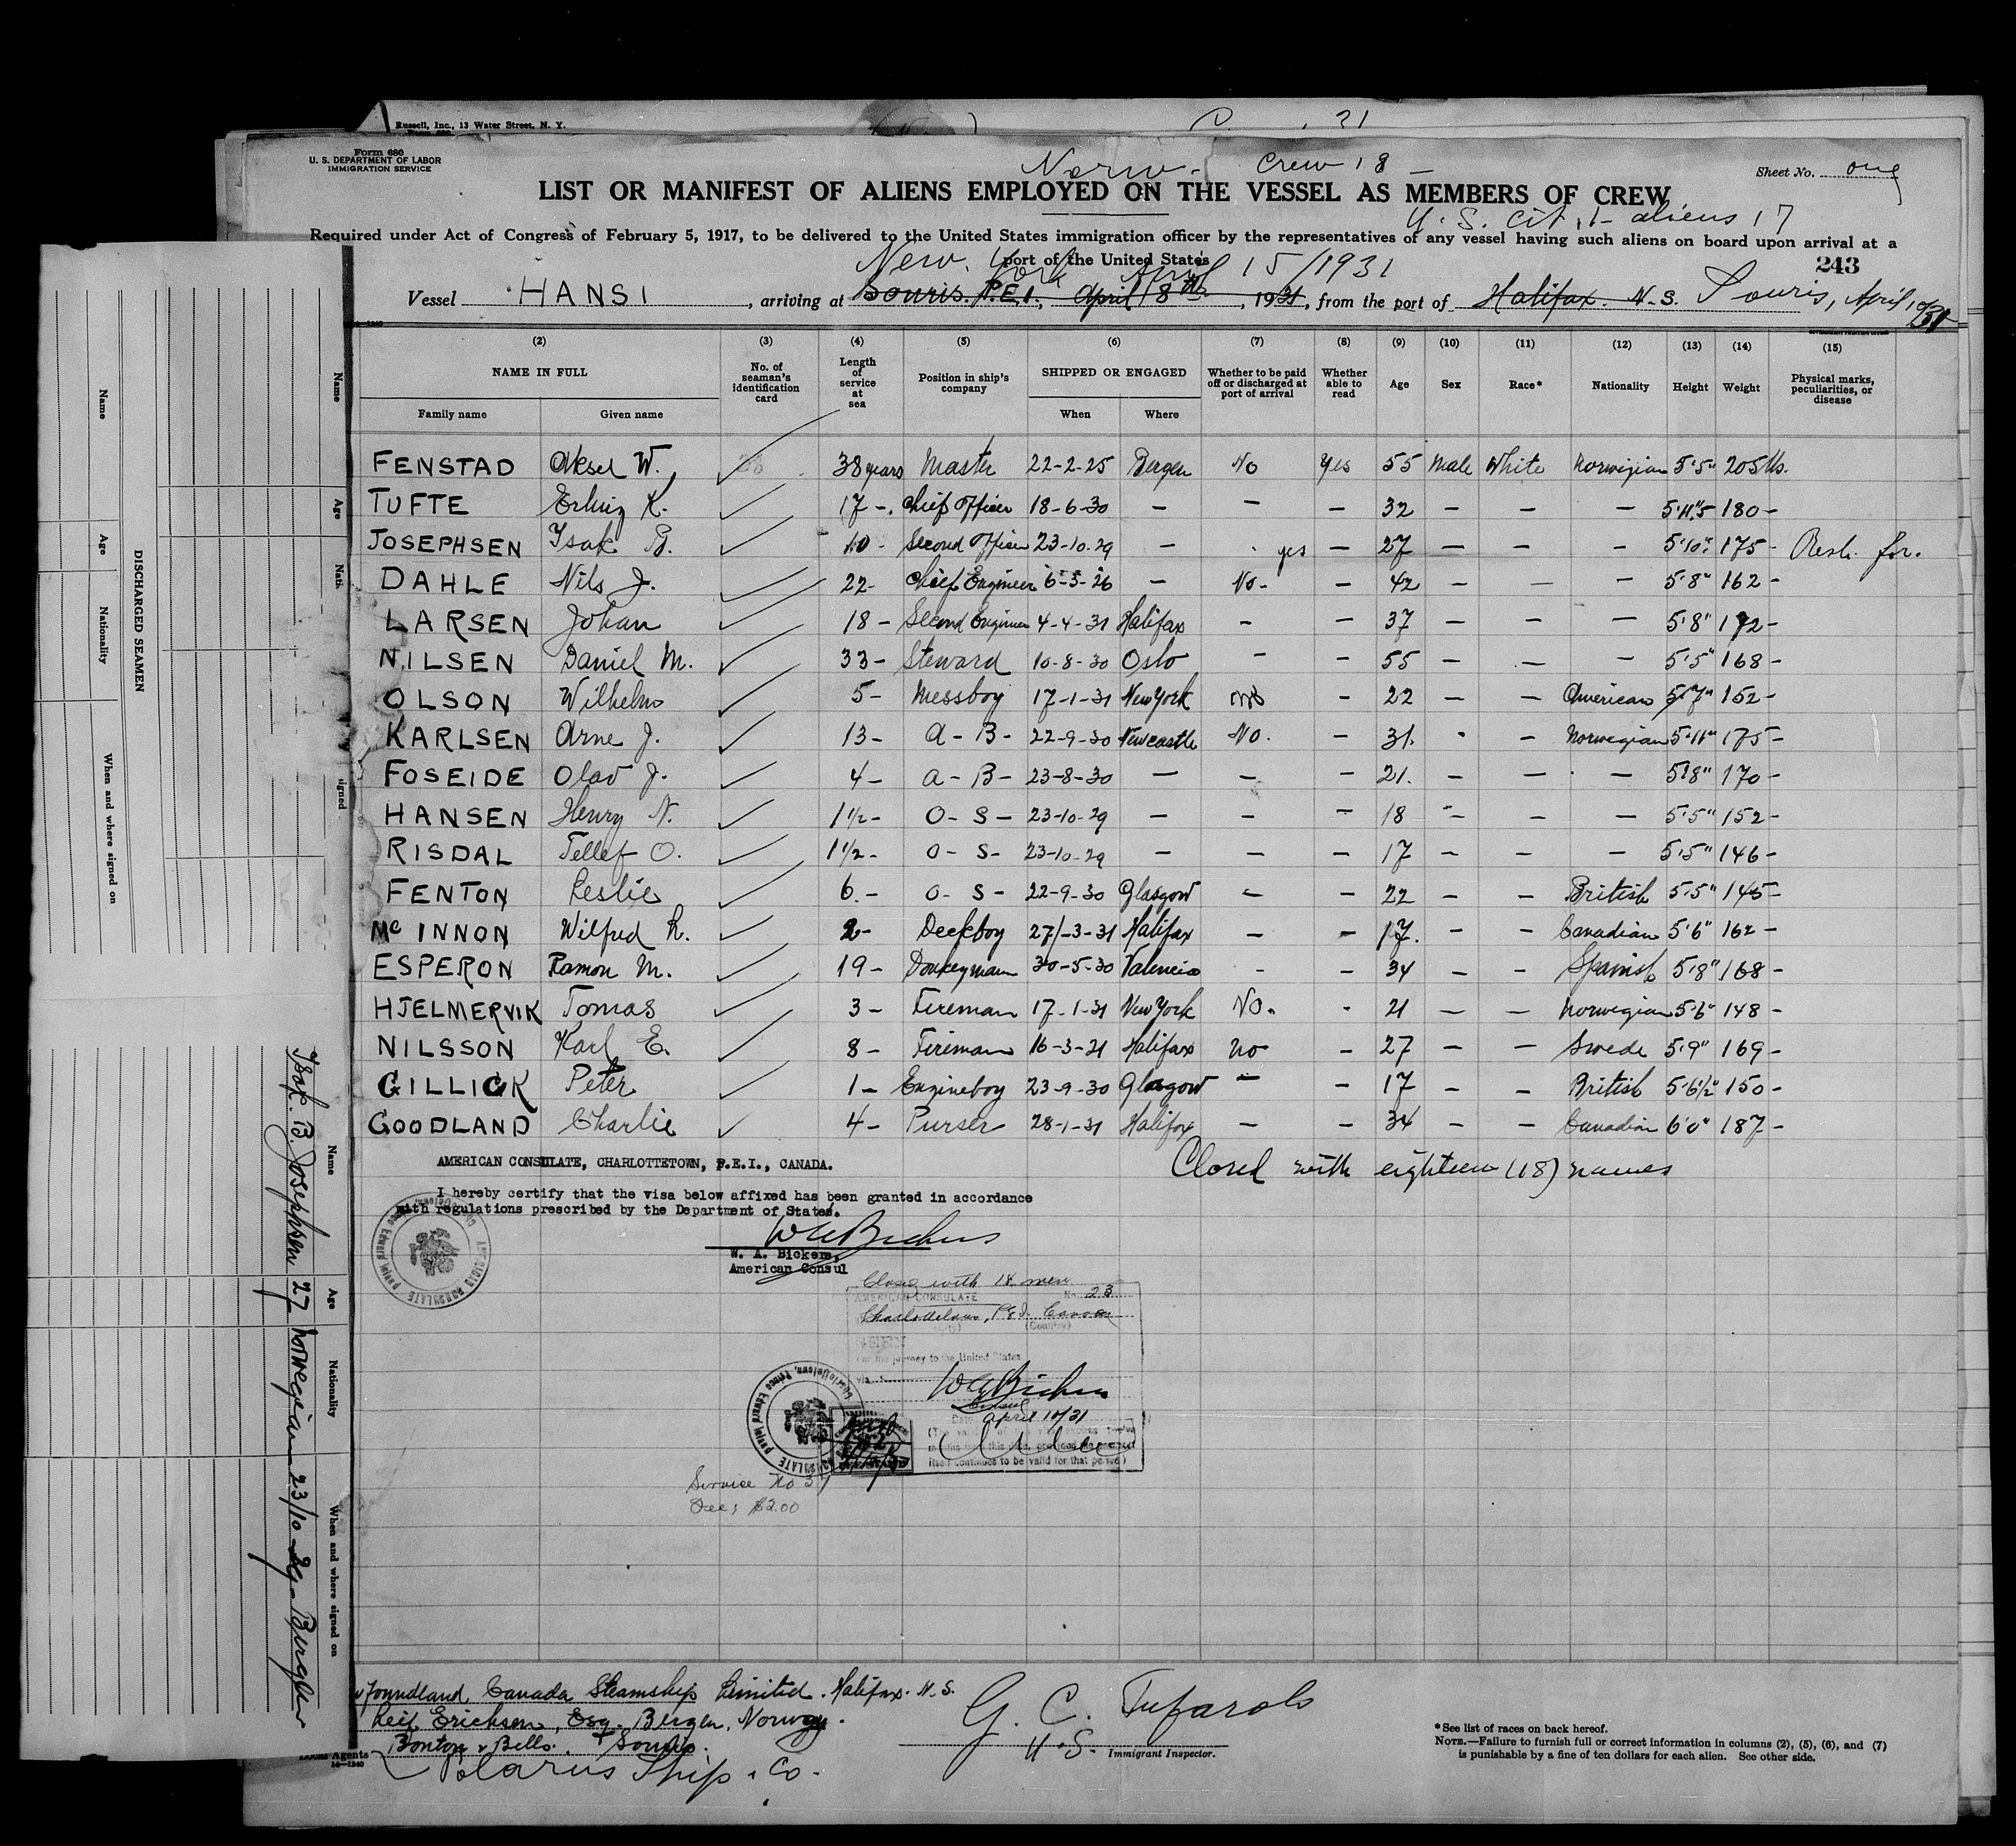 Russell, Inc., 13 Water Street, N. Y.
31
Form 680
U. S. DEPARTMENT OF LABOR
IMMIGRATION SERVICE
Norw. Crew 18 -
Sheet No. one
LIST OR MANIFEST OF ALIENS EMPLOYED ON THE VESSEL AS MEMBERS OF CREW
U. S. cit. 1 - aliens 17
Required under Act of Congress of February 5, 1917, to be delivered to the United States immigration officer by the representatives of any vessel having such aliens on board upon arrival at a
port of the United States
243
New York April 15/1931
Vessel HANSI, arriving at Souris. P.E.I., April 8th, 1931, from the port of Halifax. N-S. Souris, April 10/31
(2) (3) (4) (5) (6) (7) (8) (9) (10) (11) (12) (13) (14) (15)
NAME IN FULL
Family name Given name
No. of seaman's identification card
Length of service at sea
Position in ship's company
SHIPPED OR ENGAGED
When Where
Whether to be paid off or discharged at port of arrival
Whether able to read
Age
Sex
Race*
Nationality
Height
Weight
Physical marks, peculiarities, or disease
FENSTAD Aksel W. 38 years Master 22-2-25 Bergen No Yes 55 Male White Norwegian 5'5" 205 lbs.
TUFTE Erling K. 17 - Chief Officer 18-6-30 - - - 32 - - - 5'11"5 180 -
JOSEPHSEN Isak B. 10 - Second Officer 23-10-29 - yes - 27 - - - 5'10" 175 -
DAHLE Nils J. 22 - Chief Engineer 6-3-26 - No - - 42 - - - 5'8" 162 -
LARSEN Johan 18 - Second Engineer 4-4-31 Halifax - - 37 - - - 5'8" 172 -
NILSEN Daniel M. 33 - Steward 10-8-30 Oslo - - 55 - - - 5'5" 168 -
OLSON Wilhelm 5 - Messboy 17-1-31 New York - 22 - - American 5'7" 152 -
KARLSEN Arne J. 13 - A - B - 22-9-30 Newcastle No. - 31. - - Norwegian 5'11" 175 -
FOSEIDE Olav J. 4 - A - B - 23-8-30 - - - 21. - - - 5'8" 170 -
HANSEN Henry N. 1 1/2 - O - S - 23-10-29 - - - 18 - - - 5'5" 152 -
RISDAL Tellef O. 1 1/2 - O - S - 23-10-29 - - - 17 - - - 5'5" 146 -
FENTON Leslie 6. - O - S - 22-9-30 Glasgow - - 22 - - British 5'5" 145 -
Mc INNON Wilfred L. 2 - Deckboy 27/-3-31 Halifax - - 17. - - Canadian 5'6" 162 -
ESPERON Ramon M. 19 - Donkeyman 30-5-30 Valencia - - 34 - - Spanish 5'8" 168 -
HJELMERVIK Tomas 3 - Fireman 17-1-31 New York No. - 21 - - Norwegian 5'6" 148 -
NILSSON Karl E. 8 - Fireman 16-3-31 Halifax No - 27 - - Swede 5'9" 169 -
GILLICK Peter 1 - Engineboy 23-9-30 Glasgow - - 17 - - British 5'6 1/2" 150 -
GOODLAND Charlie 4 - Purser 28-1-31 Halifax - - 34 - - Canadian 6'0" 187 -
AMERICAN CONSULATE, CHARLOTTETOWN, P.E.I., CANADA.
Closed with eighteen (18) names
I hereby certify that the visa below affixed has been granted in accordance
with regulations prescribed by the Department of States.
W A Bickers
W. A. Bickers,
American Consul
Close with 18 men
AMERICAN CONSULATE No. 23
Charlottetown, P.E.I. Canada
(Country)
For the journey to the United States
W A Bickers
Consul
Date April 10/31
itself continues to be valid for that period)
Service No 37
Fee; $2.00
foundland Canada Steamship Limited. Halifax. N. S.
Leif Erichsen, Esq. Bergen, Norway.
Souris.
Polarus Ship. Co.
Agents
G. C. Tufarolo
U. S. Immigrant Inspector.
* See list of races on back hereof.
NOTE.—Failure to furnish full or correct information in columns (2), (5), (6), and (7)
is punishable by a fine of ten dollars for each alien. See other side.
DISCHARGED SEAMEN
Name Age Nationality When and where signed on
Name Age Nationality When and where signed on
Isak. B. Josephsen 27 Norwegian 23/10-29 - Bergen